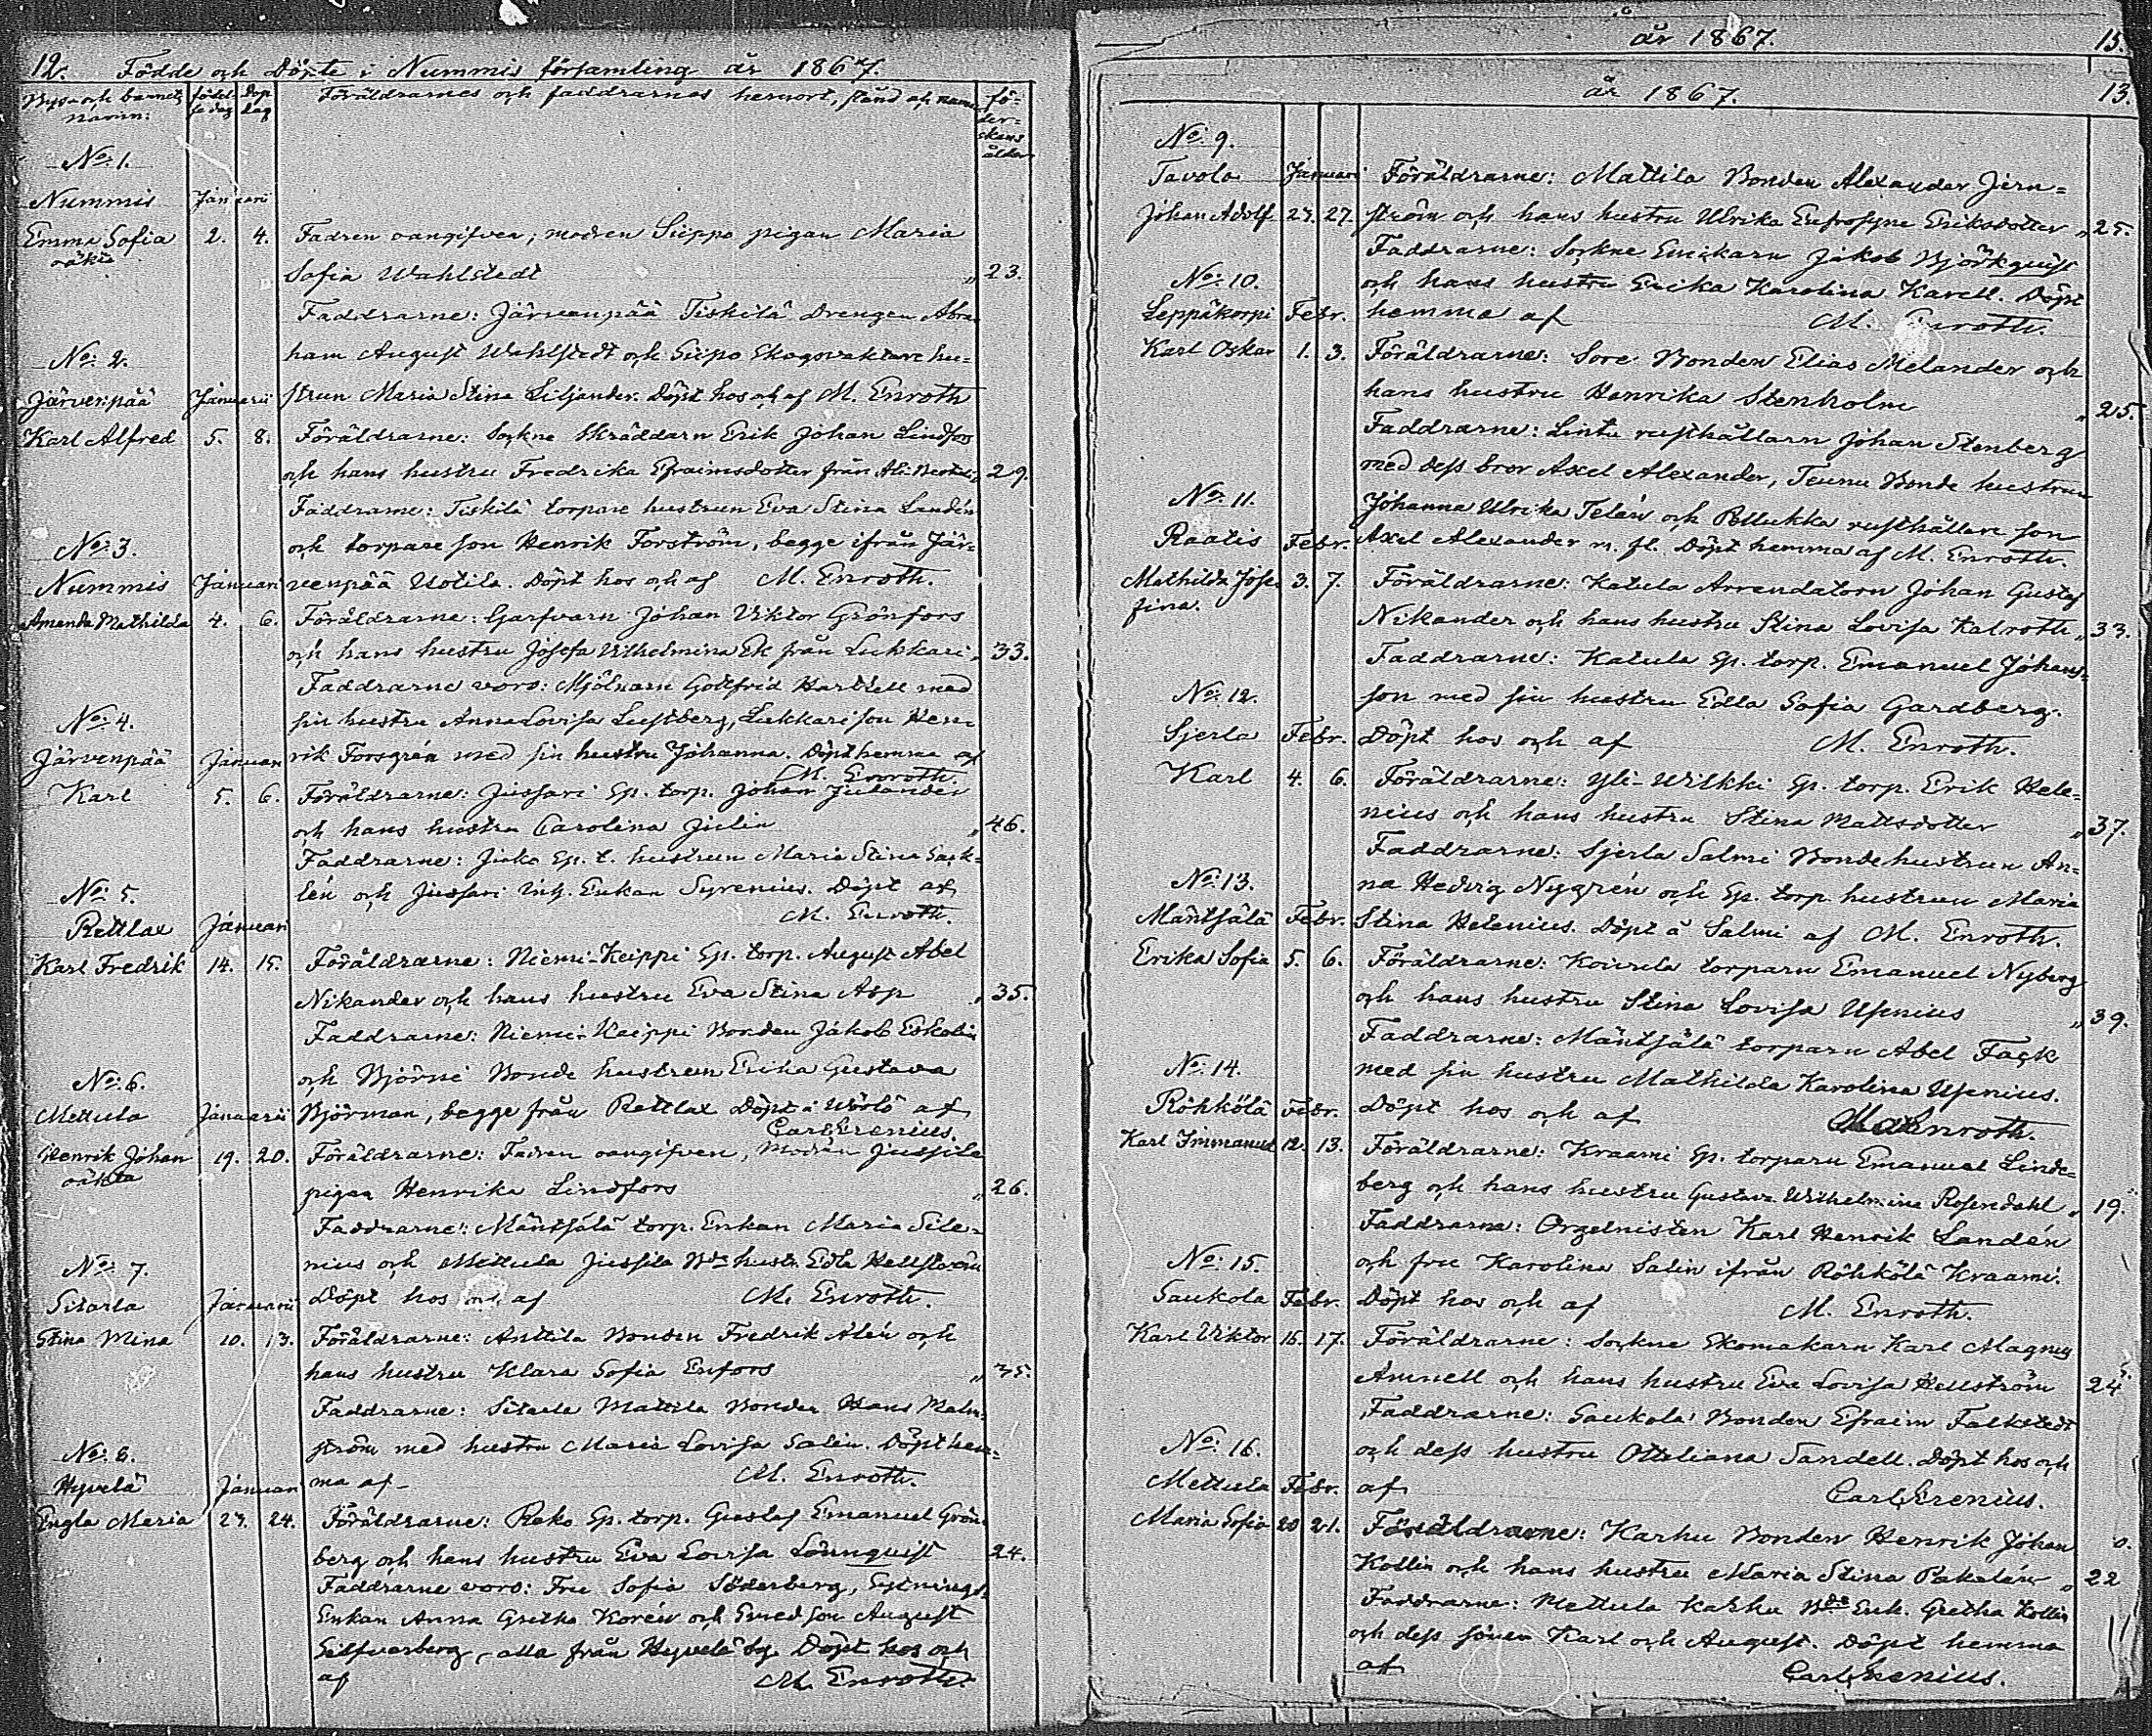 12. Födde och Döpte i Nummis församling år 1867.
By- och barnets namn: födel-se dag Dop dag Föräldrarnes och faddrarnes hemort, stånd och namn fö-der-skans ålder
No: 1.
Nummis Januarii
Emma Sofia 2. 4. Fadren oangifven; modren Sieppo pigan Maria
oäkta
Sofia Wahlstedt " 23.
Faddrarne: Järvenpää Tiskilä Drengen Abra-
No: 2. ham August Wahlstedt och Sieppo Skogovaktare hu-
Järvenpää Januarii strun Maria Stina Liljander. Döpt hos och af M. Enroth
Karl Alfred 5. 8. Föräldrarne: Sockne Skräddarn Erik Johan Lindfors
och hans hustru Fredrika Efraimsdotter från 29.
Faddrarne: Tiskilä torpare hustrun Eva Stina Landén
No: 3. och torpare son Henrik Forström, begge ifrån Jär-
Nummis Januari venpää Uotila. Döpt hos och af M. Enroth.
Amanda Mathilda 4. 6. Föräldrarne: Garfvarn Johan Viktor Grönfors
och hans hustru Josefa Vilhelmina Ek från Lukkari " 33.
Faddrarne voro: Mjölnarn Gottfrid Hartell med
No: 4. sin hustru Anna Lovisa Lustberg, Lukkari son Hen-
Järvenpää Januari rik Forsgrén med sin hustru Johanna. Döpt hemma af
M. Enroth.
Karl 5. 6. Föräldrarne: Jussari Sp. torp. Johan Julander
och hans hustru Carolina Julin " 46.
Faddrarne: Sp. t. hustrun Maria Stina
No: 5. lén och Jussari Enkan Syrenius. Döpt af
M. Enroth.
Rettlax Januari
Karl Fredrik 14. 15. Föräldrarne: Niemi-Keippi Sp. torp. August Abel
Nikander och hans hustru Eva Stina Asp " 35.
Faddrarne: Niemi-Keippi Bonden Jakob Eskolin
No: 6. och Björni Bonde hustrun Erika Gustava
Mettula Januarii Björman, begge från Rettlax Döpt i af
Carl Grenius.
Henrik Johan 19. 20. Föräldrarne: Fadren oangifven, Modren Jussila
oäkta
pigan Henrika Lindfors " 26.
Faddrarne: Mäntsälä torp. Enkan Maria Sile-
No: 7. nius och Mettula Jussila hustr. Edla Hellström
Sitarla Januarii Döpt hos och af M. Enroth.
Stina Mina 10. 13. Föräldrarne: Anttila Bonden Fredrik Alén och
hans hustru Klara Sofia Enfors " 35.
Faddrarne: Sitarla Mattila Bonden Hans Malm-
No: 8. ström med hustru Maria Lovisa Salin. Döpt hem-
Hyvelä Januari ma af M. Enroth.
Engla Maria 27. 24. Föräldrarne: Reko Sp. torp. Gustaf Emanuel Grön-
berg och hans hustru Eva Lovisa Lönnquist 24.
Faddrarne voro: Fru Sofia Söderberg,
Enkan Anna Gretha Korén och Smed son August
Silfverberg, alla från Hyvelä by. Döpt hos och
af M. Enroth.
år 1867. 15.
år 1867. 13.
No: 9.
Tavola Januari Föräldrarne: Mattila Bonden Alexander Jern-
Johan Adolf 27. 27. ström och hans hustru Ulrika Eufrosyne Eriksdotter " 25.
Faddrarne: Sockne Snickarn Jakob Björkquist
No: 10. och hans hustru Erika Karolina Karell. Döpt
Leppäkorpi Febr. hemma af M. Enroth.
Karl Oskar 1. 3. Föräldrarne: Sore Bonden Elias Melander och
hans hustru Henrika Stenholm " 25.
Faddrarne: Lintu rusthållarn Johan Stenberg
med dess bror Axel Alexander, Teunu Bonde hustrun
No: 11. Johanna Ulrika Telén och Pollukka rusthållare son
Raatis Febr. Axel Alexander m. fl. Döpt hemma af M. Enroth.
Mathilda Jose- 3. 7. Föräldrarne: Katula Arrendatorn Johan Gustaf
fina. Nikander och hans hustru Stina Lovisa Kalroth " 33.
Faddrarne: Katula Sp. torp. Emanuel Johans-
No: 12. son med sin hustru Edla Sofia Gardberg.
Sjerla Febr. Döpt hos och af M. Enroth.
Karl 4. 6. Föräldrarne: Yli-Wilkki Sp. torp. Erik Hele-
nius och hans hustru Stina Mattsdotter " 37.
Faddrarne: Sjerla Salmi Bondehustrun An-
No: 13. na Hedvig Nygrén och Sp. torp. hustrun Maria
Mäntsälä Febr. Stina Helenius. Döpt å Salmi af M. Enroth.
Erika Sofia 5. 6. Föräldrarne: Koisela torparn Emanuel Nyberg
och hans hustru Stina Lovisa Usenius " 39.
Faddrarne: Mäntsälä torparn Abel Fack
No: 14. med sin hustru Mathilda Karolina Usenius.
Röhkölä Febr. Döpt hos och af M. Enroth.
Karl Immanuel 12. 13. Föräldrarne: Kraami Sp. torparn Emanuel Linde-
berg och hans hustru Gustava Wilhelmina Rosendahl " 19.
Faddrarne: Orgelnisten Karl Henrik Landén
No: 15. och fru Karolina Salin ifrån Röhkölä Kraami.
Saukola Febr. Döpt hos och af M. Enroth.
Karl Viktor 15. 17. Föräldrarne: Sockne Skomakarn Karl Magnus
Amnell och hans hustru Eva Lovisa Hellström 24
Faddrarne: Saukola Bonden Efraim Falkstedt
No: 16. och dess hustru Otteliana Sandell. Döpt hos och
Mettula Febr. af Carl Grenius.
Maria Sofia 20 21. Föräldrarne: Karhu Bonden Henrik Johan
Kollin och hans hustru Maria Stina Pakalén " 22
Faddrarne: Mettula Karhu Bde Enk. Gretha Kollin
och dess söner Karl och August. Döpt hemma
af Carl Grenius.